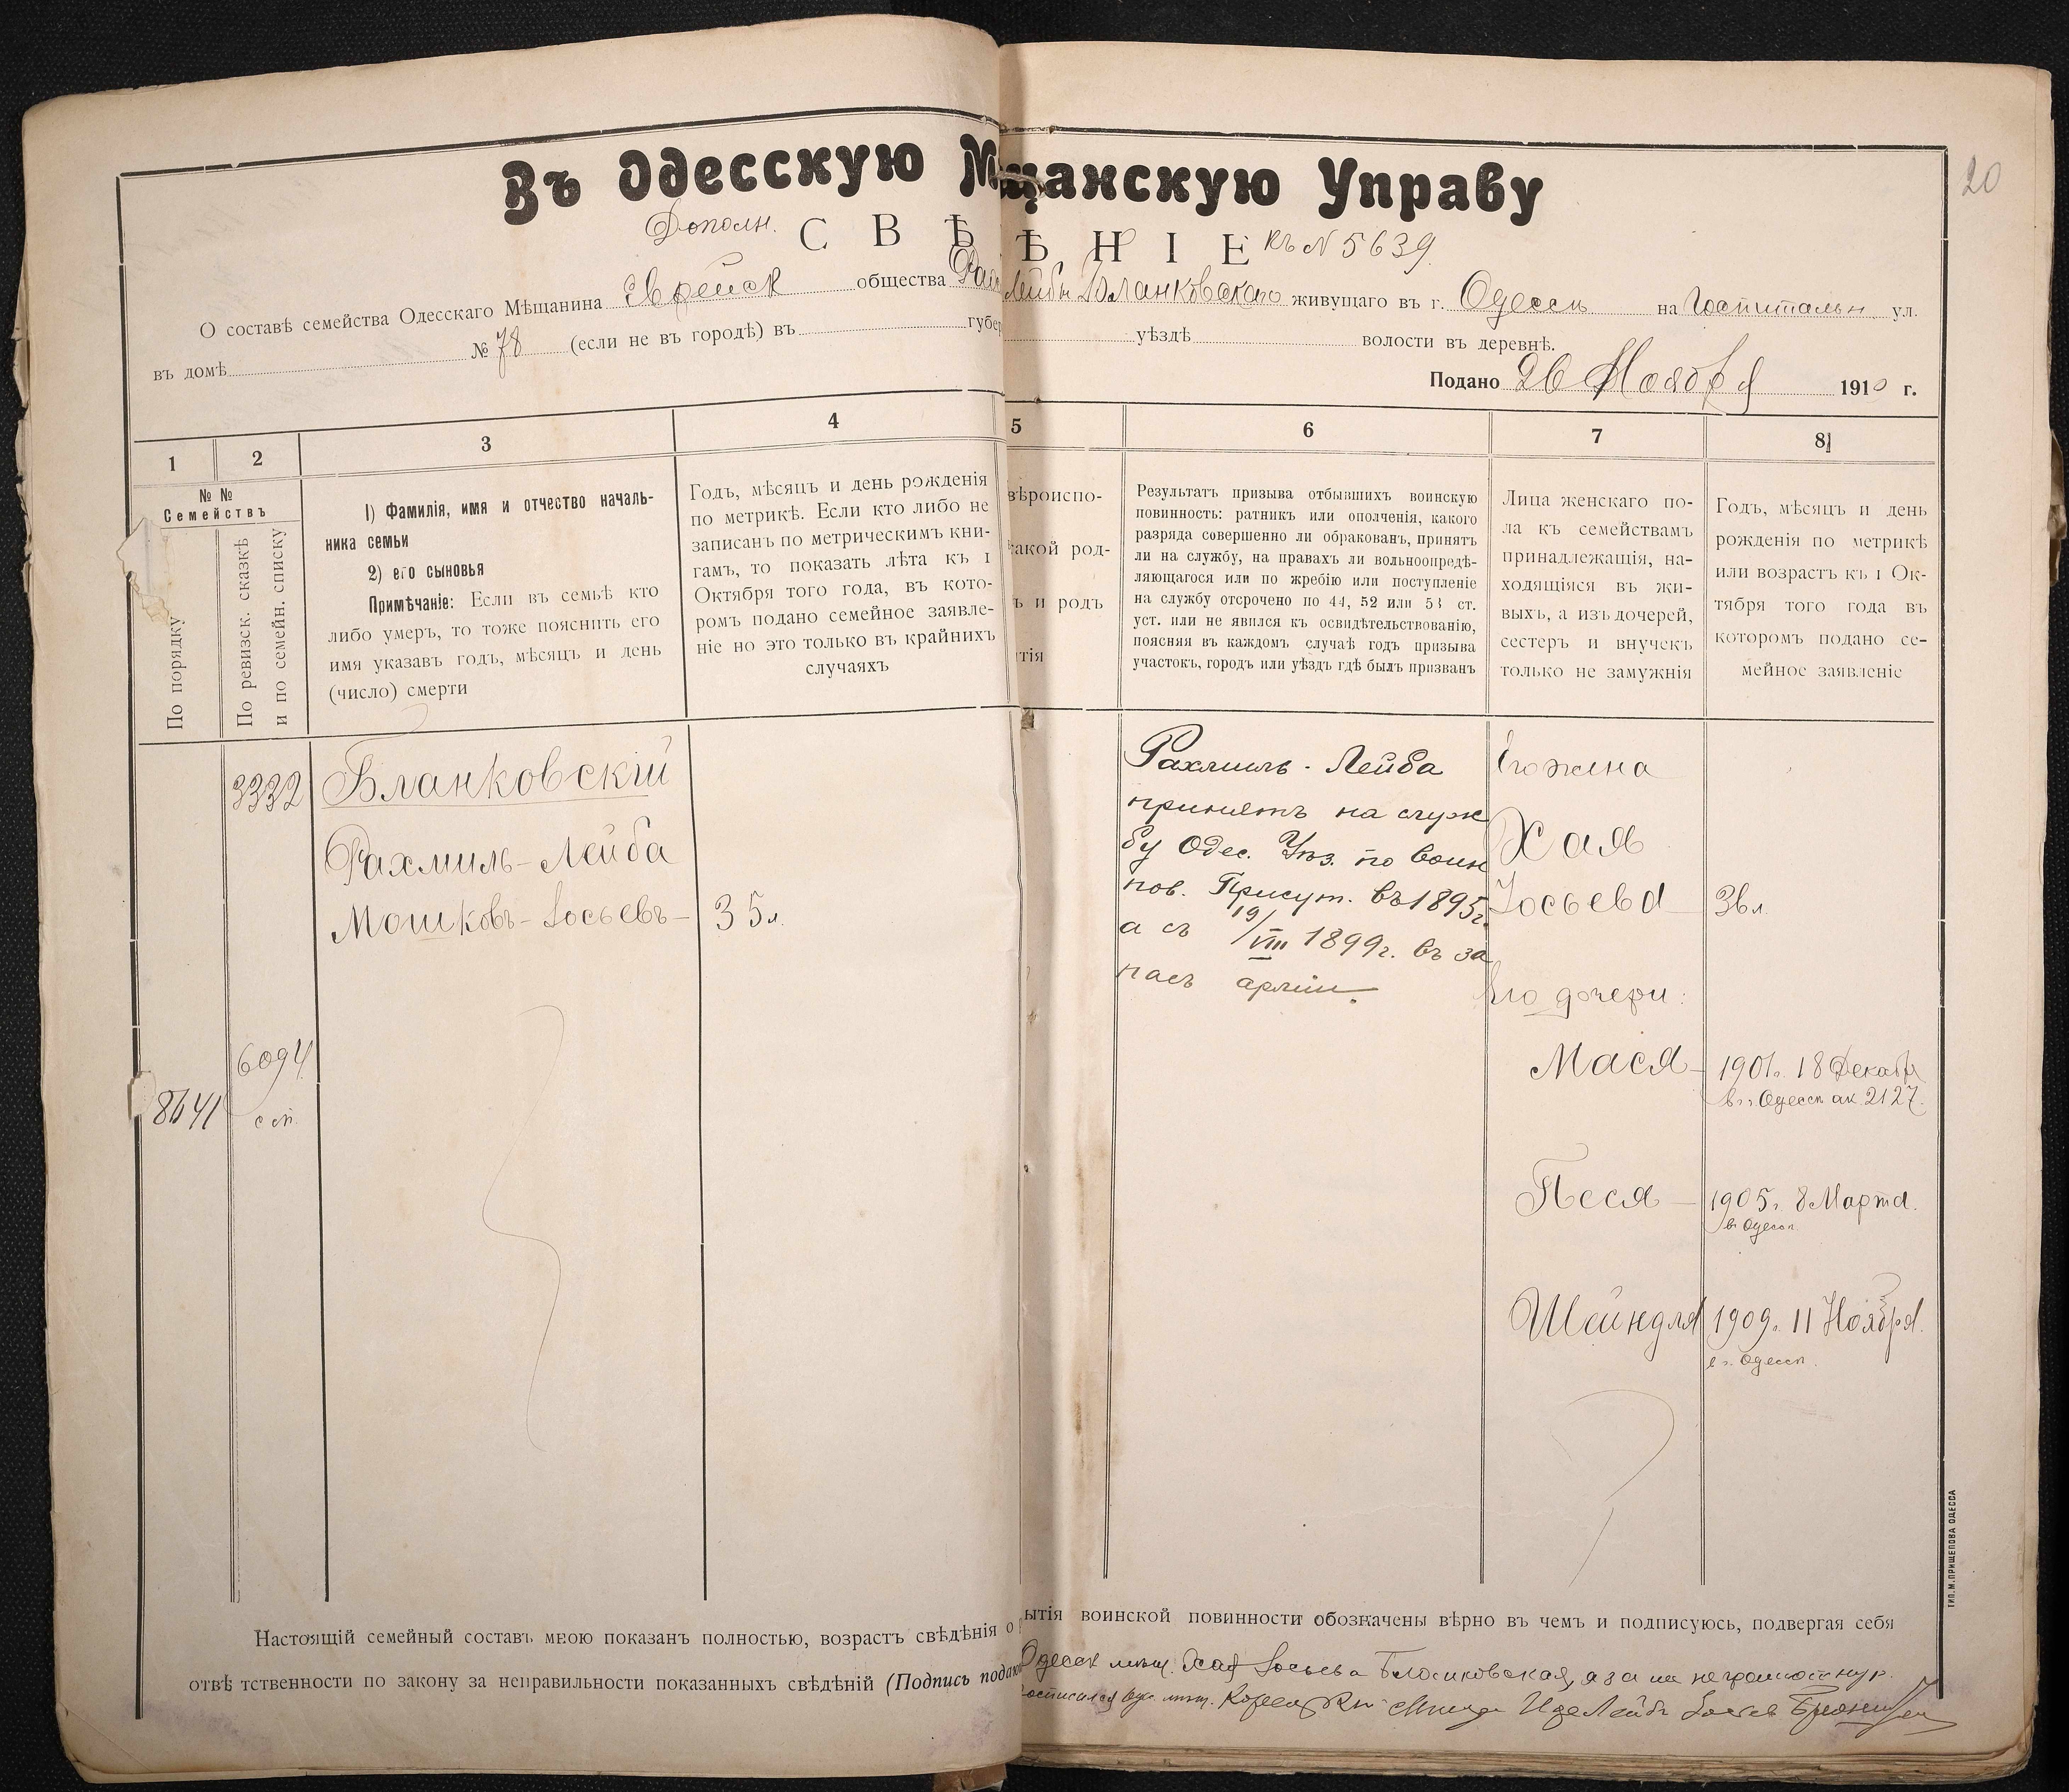 20
Въ Одесскую М щанскую Управу
Дополн.
СВѢ ѢНІЕ къ № 5639
О составѣ семейства Одесскаго Мѣщанина Еврейск общества Рах Лейбы Бланковскаго живущаго въ г. Одессѣ на Госпитальн ул.
въ домѣ № 78 (если не въ городѣ) въ губер уѣздѣ волости въ деревнѣ.
Подано 26 Ноября 1910 г.
1 2 3 4 5 6 7 8
№ №
Семействъ
По порядку
По ревизск. сказкѣ
и по семейн. списку
1) Фамилія, имя и отчество началь-
ника семьи
2) его сыновья
Примѣчаніе: Если въ семьѣ кто
либо умеръ, то тоже пояснить его
имя указавъ годъ, мѣсяцъ и день
(число) смерти
Годъ, мѣсяцъ и день рожденія
по метрикѣ. Если кто либо не
записанъ по метрическимъ кни-
гамъ, то показать лѣта къ 1
Октября того года, въ кото-
ромъ подано семейное заявле-
ніе но это только въ крайнихъ
случаяхъ
вѣроиспо-
акой род-
ъ и родъ
тія
Результатъ призыва отбывшихъ воинскую
повинность: ратникъ или ополченія, какого
разряда совершенно ли обракованъ, принятъ
ли на службу, на правахъ ли вольноопредѣ-
ляющагося или по жребію или поступленіе
на службу отсрочено по 44, 52 или 53 ст.
уст. или не явился къ освидѣтельствованію,
поясняя въ каждомъ случаѣ годъ призыва
участокъ, городъ или уѣздъ гдѣ былъ призванъ
Лица женскаго по-
ла къ семействамъ
принадлежащія, на-
ходящіяся въ жи-
выхъ, а изъ дочерей,
сестеръ и внучекъ
только не замужнія
Годъ, мѣсяцъ и день
рожденія по метрикѣ
или возрастъ къ 1 Ок-
тября того года въ
которомъ подано се-
мейное заявленіе
3332
Бланковскій
Рахмиль-Лейба
Мошковъ-Іосьевъ- 35 л.
6094
с сп.
8641
Рахмиль-Лейба
принятъ на служ
бу Одес. Уѣз. по воин
пов. Присут. въ 1895 г.
а съ 19/VIII 1899 г. въ за
пасъ арміи.
Его жена
Хая
Іосьева 36 л.
Его дочери:
Мася- 1901 г. 18 Декабр
в г. Одессѣ ак. 2127.
Песя- 1905 г. 8 Марта.
в Одессѣ.
Шейндля 1909 г. 11 Ноября.
в г. Одессѣ.
Настоящій семейный составъ мною показанъ полностью, возрастъ свѣдѣнія о ытія воинской повинности обозначены вѣрно въ чемъ и подписуюсь, подвергая себя
отвѣтственности по закону за неправильности показанныхъ свѣдѣній (Подпись подаю Одесск мѣщ. Хая Іосьева Бланковская, а за нее неграмотную
мѣщ. Лейбъ
ТИП. М. ПРИЩЕПОВА ОДЕССА